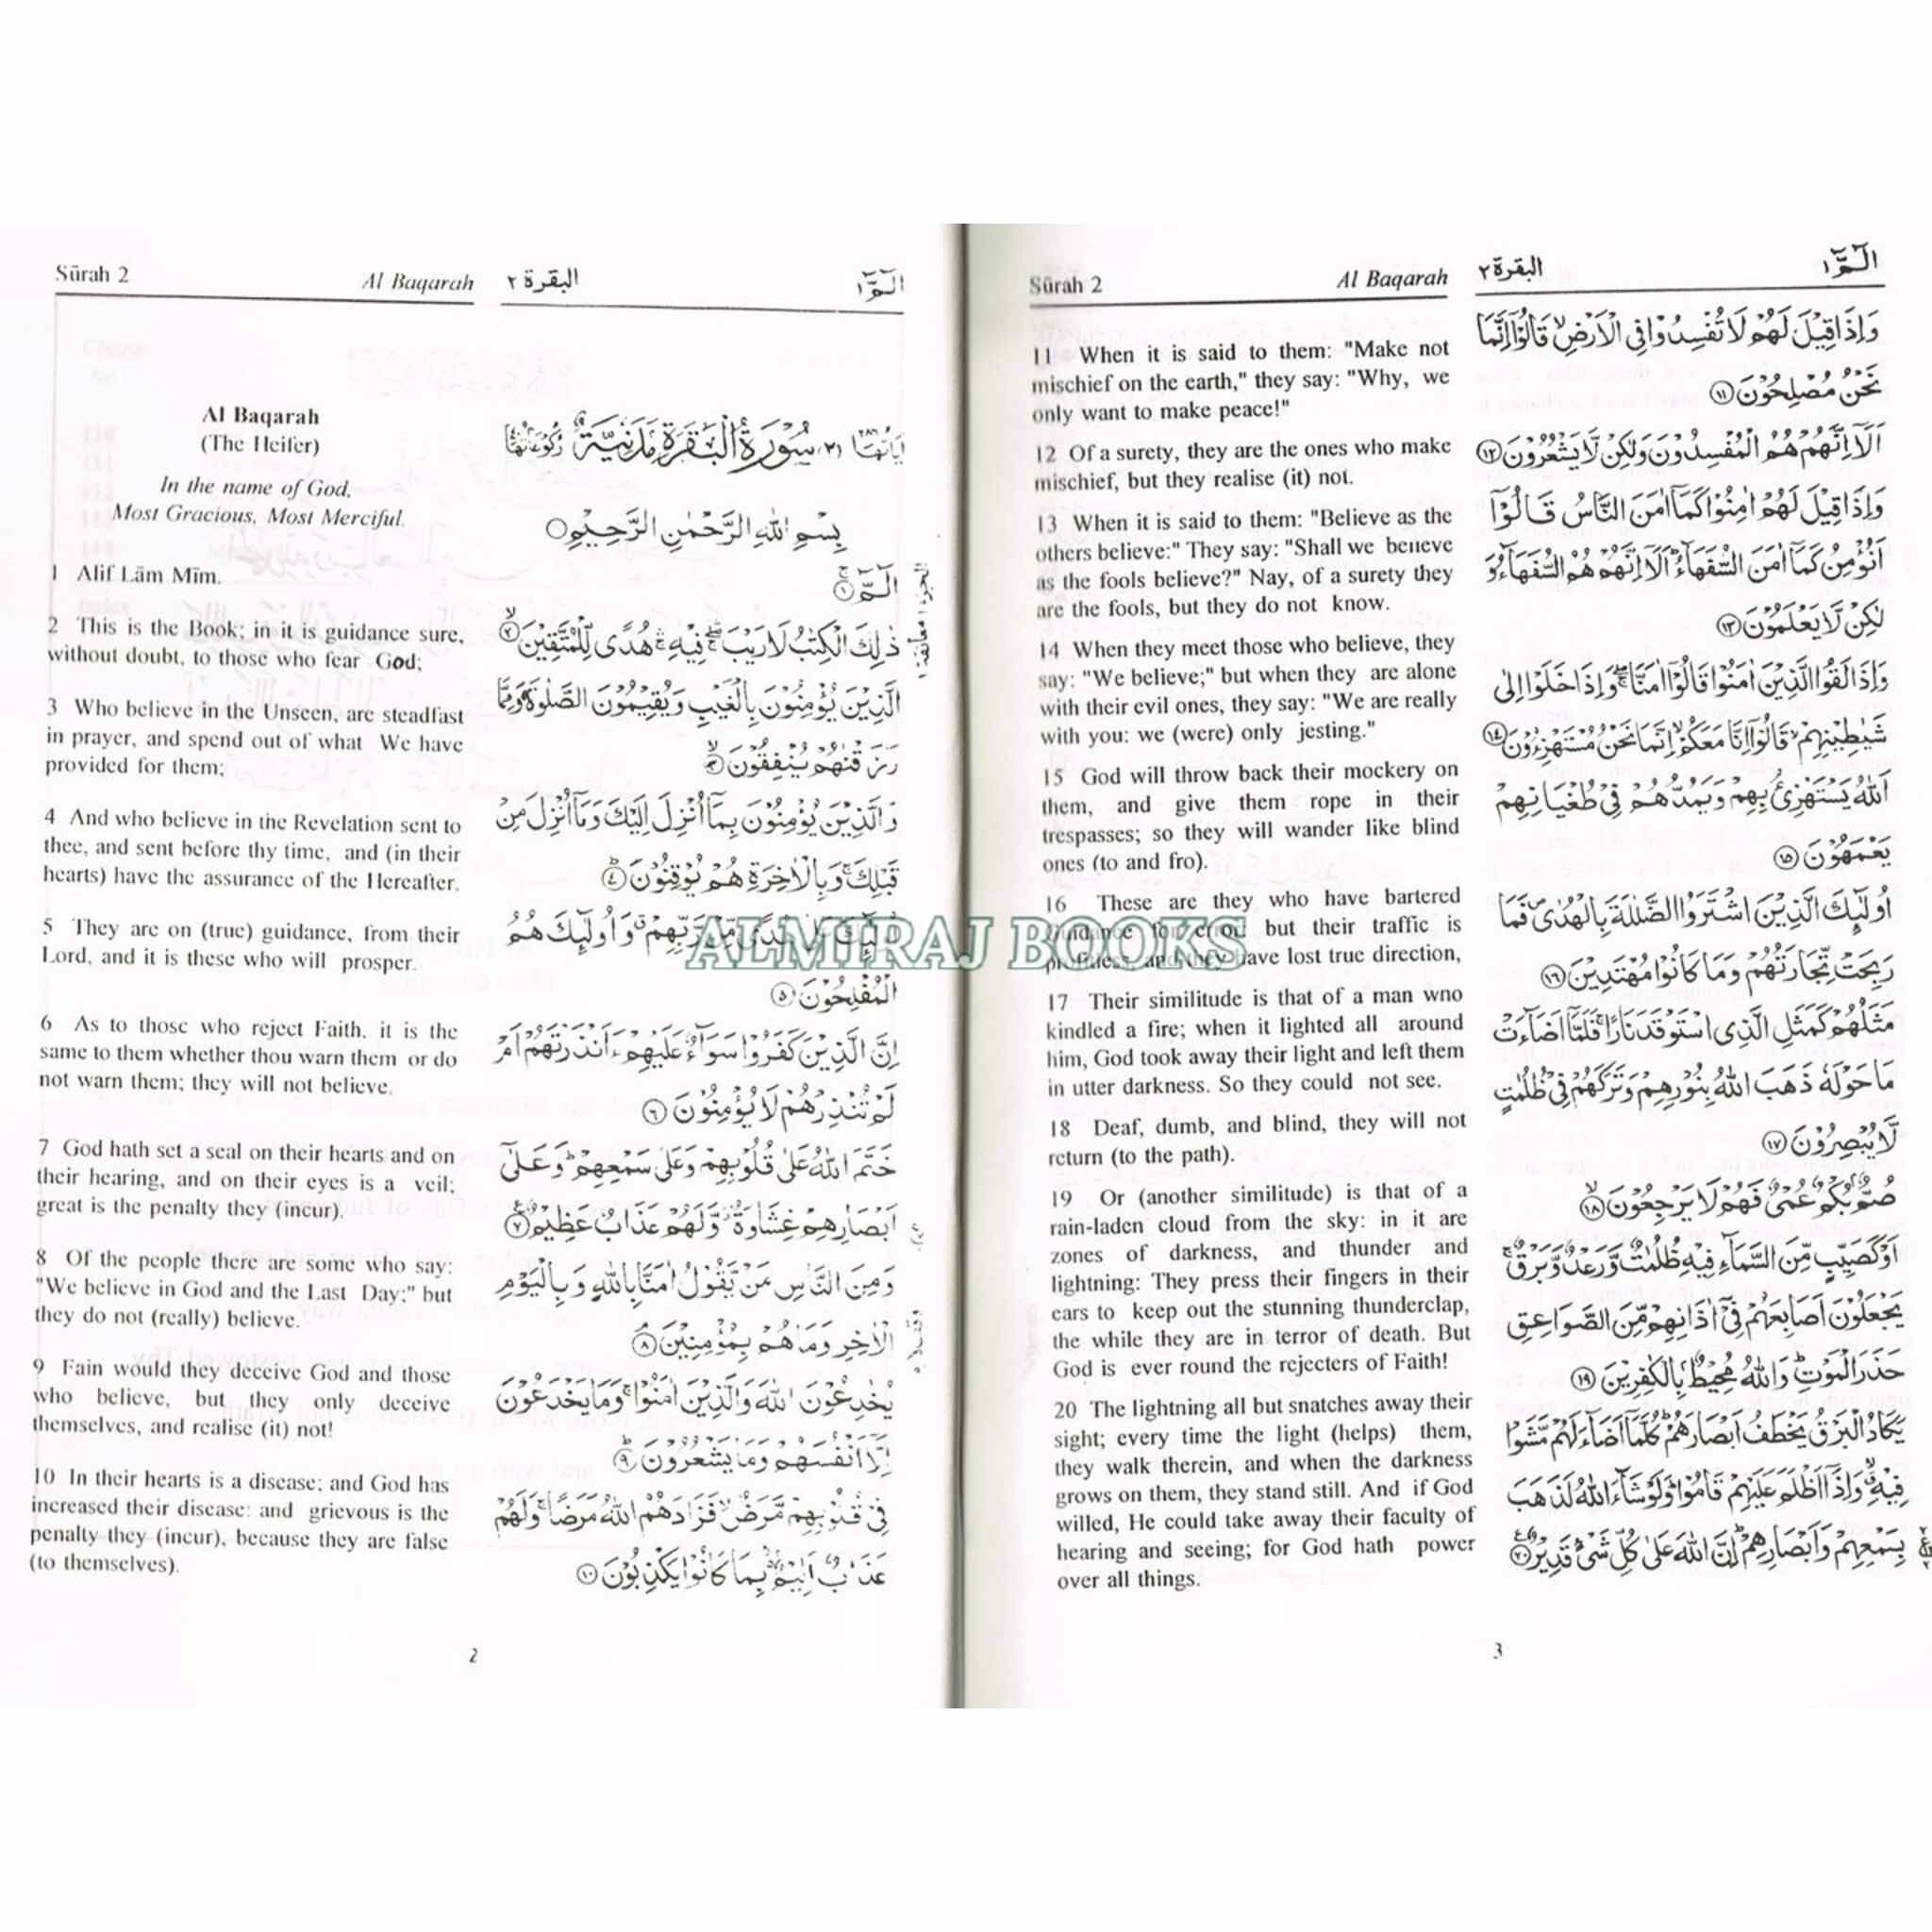 Sūrah 2
Al Baqarah
البقرة ٢
الٓمّٓ ١
Al Baqarah
(The Heifer)
In the name of God,
Most Gracious, Most Merciful.
1 Alif Lām Mīm.
2 This is the Book; in it is guidance sure,
without doubt, to those who fear God;
3 Who believe in the Unseen, are steadfast
in prayer, and spend out of what We have
provided for them;
4 And who believe in the Revelation sent to
thee, and sent before thy time, and (in their
hearts) have the assurance of the Hereafter.
5 They are on (true) guidance, from their
Lord, and it is these who will prosper.
6 As to those who reject Faith, it is the
same to them whether thou warn them or do
not warn them; they will not believe.
7 God hath set a seal on their hearts and on
their hearing, and on their eyes is a veil;
great is the penalty they (incur).
8 Of the people there are some who say:
"We believe in God and the Last Day;" but
they do not (really) believe.
9 Fain would they deceive God and those
who believe, but they only deceive
themselves, and realise (it) not!
10 In their hearts is a disease; and God has
increased their disease: and grievous is the
penalty they (incur), because they are false
(to themselves).
سُوْرَةُ الْبَقَرَةِ مَدَنِيَّةٌ
بِسْمِ اللّٰهِ الرَّحْمٰنِ الرَّحِيْمِ
الٓمّٓ ١
ذٰلِكَ الْكِتٰبُ لَا رَيْبَ فِيْهِ هُدًى لِّلْمُتَّقِيْنَ ٢
الَّذِيْنَ يُؤْمِنُوْنَ بِالْغَيْبِ وَيُقِيْمُوْنَ الصَّلٰوةَ وَمِمَّا
رَزَقْنٰهُمْ يُنْفِقُوْنَ ٣
وَالَّذِيْنَ يُؤْمِنُوْنَ بِمَآ اُنْزِلَ اِلَيْكَ وَمَآ اُنْزِلَ مِنْ
قَبْلِكَ وَبِالْاٰخِرَةِ هُمْ يُوْقِنُوْنَ ٤
رَّبِّهِمْ وَاُولٰٓئِكَ هُمُ
الْمُفْلِحُوْنَ ٥
اِنَّ الَّذِيْنَ كَفَرُوْا سَوَآءٌ عَلَيْهِمْ ءَاَنْذَرْتَهُمْ اَمْ
لَمْ تُنْذِرْهُمْ لَا يُؤْمِنُوْنَ ٦
خَتَمَ اللّٰهُ عَلٰى قُلُوْبِهِمْ وَعَلٰى سَمْعِهِمْ وَعَلٰٓى
اَبْصَارِهِمْ غِشَاوَةٌ وَّلَهُمْ عَذَابٌ عَظِيْمٌ ٧
وَمِنَ النَّاسِ مَنْ يَّقُوْلُ اٰمَنَّا بِاللّٰهِ وَبِالْيَوْمِ
الْاٰخِرِ وَمَا هُمْ بِمُؤْمِنِيْنَ ٨
يُخٰدِعُوْنَ اللّٰهَ وَالَّذِيْنَ اٰمَنُوْا وَمَا يَخْدَعُوْنَ
اِلَّآ اَنْفُسَهُمْ وَمَا يَشْعُرُوْنَ ٩
فِيْ قُلُوْبِهِمْ مَّرَضٌ فَزَادَهُمُ اللّٰهُ مَرَضًا وَلَهُمْ
عَذَابٌ اَلِيْمٌ بِمَا كَانُوْا يَكْذِبُوْنَ ١٠
2
ALMIRAJ BOOKS
Sūrah 2
Al Baqarah
البقرة ٢
الٓمّٓ ١
11 When it is said to them: "Make not
mischief on the earth," they say: "Why, we
only want to make peace!"
12 Of a surety, they are the ones who make
mischief, but they realise (it) not.
13 When it is said to them: "Believe as the
others believe:" They say: "Shall we believe
as the fools believe?" Nay, of a surety they
are the fools, but they do not know.
14 When they meet those who believe, they
say: "We believe;" but when they are alone
with their evil ones, they say: "We are really
with you: we (were) only jesting."
15 God will throw back their mockery on
them, and give them rope in their
trespasses; so they will wander like blind
ones (to and fro).
16 These are they who have bartered
but their traffic is
have lost true direction,
17 Their similitude is that of a man who
kindled a fire; when it lighted all around
him, God took away their light and left them
in utter darkness. So they could not see.
18 Deaf, dumb, and blind, they will not
return (to the path).
19 Or (another similitude) is that of a
rain-laden cloud from the sky: in it are
zones of darkness, and thunder and
lightning: They press their fingers in their
ears to keep out the stunning thunderclap,
the while they are in terror of death. But
God is ever round the rejecters of Faith!
20 The lightning all but snatches away their
sight; every time the light (helps) them,
they walk therein, and when the darkness
grows on them, they stand still. And if God
willed, He could take away their faculty of
hearing and seeing; for God hath power
over all things.
وَاِذَا قِيْلَ لَهُمْ لَا تُفْسِدُوْا فِى الْاَرْضِ قَالُوْٓا اِنَّمَا
نَحْنُ مُصْلِحُوْنَ ١١
اَلَآ اِنَّهُمْ هُمُ الْمُفْسِدُوْنَ وَلٰكِنْ لَّا يَشْعُرُوْنَ ١٢
وَاِذَا قِيْلَ لَهُمْ اٰمِنُوْا كَمَآ اٰمَنَ النَّاسُ قَالُوْٓا
اَنُؤْمِنُ كَمَآ اٰمَنَ السُّفَهَآءُ اَلَآ اِنَّهُمْ هُمُ السُّفَهَآءُ وَ
لٰكِنْ لَّا يَعْلَمُوْنَ ١٣
وَاِذَا لَقُوا الَّذِيْنَ اٰمَنُوْا قَالُوْٓا اٰمَنَّا وَاِذَا خَلَوْا اِلٰى
شَيٰطِيْنِهِمْ قَالُوْٓا اِنَّا مَعَكُمْ اِنَّمَا نَحْنُ مُسْتَهْزِءُوْنَ ١٤
اَللّٰهُ يَسْتَهْزِئُ بِهِمْ وَيَمُدُّهُمْ فِيْ طُغْيَانِهِمْ
يَعْمَهُوْنَ ١٥
اُولٰٓئِكَ الَّذِيْنَ اشْتَرَوُا الضَّلٰلَةَ بِالْهُدٰى فَمَا
رَبِحَتْ تِّجَارَتُهُمْ وَمَا كَانُوْا مُهْتَدِيْنَ ١٦
مَثَلُهُمْ كَمَثَلِ الَّذِى اسْتَوْقَدَ نَارًا فَلَمَّآ اَضَآءَتْ
مَا حَوْلَهٗ ذَهَبَ اللّٰهُ بِنُوْرِهِمْ وَتَرَكَهُمْ فِيْ ظُلُمٰتٍ
لَّا يُبْصِرُوْنَ ١٧
صُمٌّۢ بُكْمٌ عُمْيٌ فَهُمْ لَا يَرْجِعُوْنَ ١٨
اَوْ كَصَيِّبٍ مِّنَ السَّمَآءِ فِيْهِ ظُلُمٰتٌ وَّرَعْدٌ وَّبَرْقٌ
يَجْعَلُوْنَ اَصَابِعَهُمْ فِيْٓ اٰذَانِهِمْ مِّنَ الصَّوَاعِقِ
حَذَرَ الْمَوْتِ وَاللّٰهُ مُحِيْطٌۢ بِالْكٰفِرِيْنَ ١٩
يَكَادُ الْبَرْقُ يَخْطَفُ اَبْصَارَهُمْ كُلَّمَآ اَضَآءَ لَهُمْ مَّشَوْا
فِيْهِ وَاِذَآ اَظْلَمَ عَلَيْهِمْ قَامُوْا وَلَوْ شَآءَ اللّٰهُ لَذَهَبَ
بِسَمْعِهِمْ وَاَبْصَارِهِمْ اِنَّ اللّٰهَ عَلٰى كُلِّ شَيْءٍ قَدِيْرٌ ٢٠
3